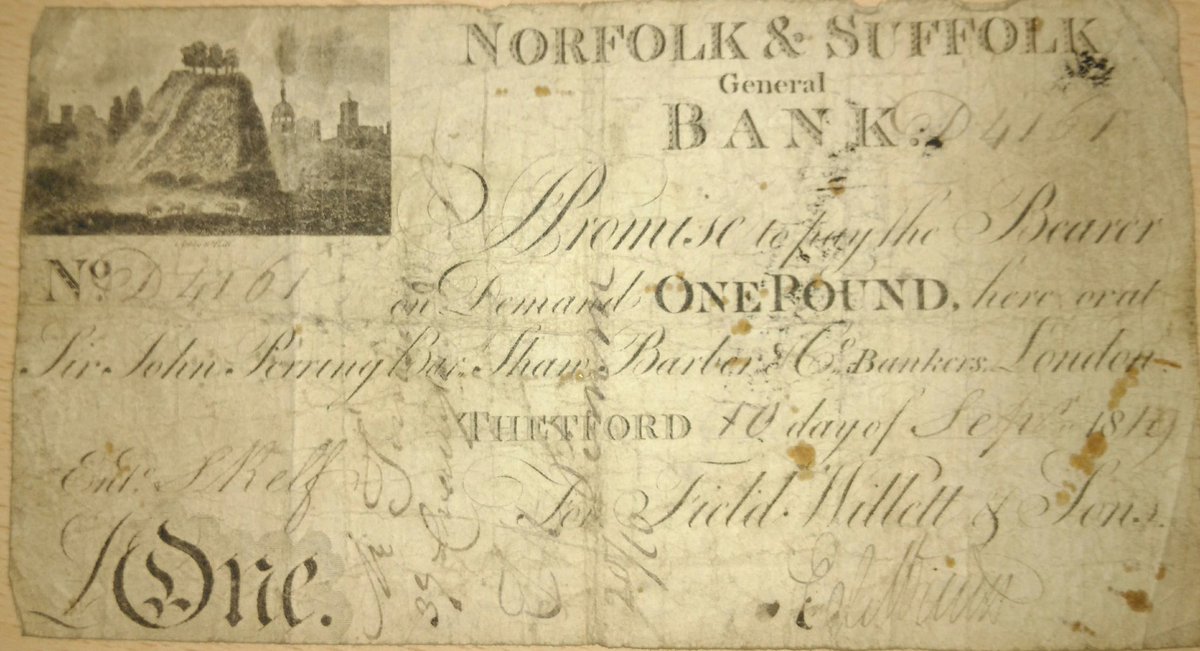 NORFOLK & SUFFOLK
General
BANK. D4161
I Promise to pay the Bearer
No. D 4161 on Demand ONE POUND, here or at
Sir John Perring Bar. Shaw, Barber & Co. Bankers, London.
THETFORD 10 day of Sepr. 1819
Entd. S Kelf For Field Willett & Sons.
£One.